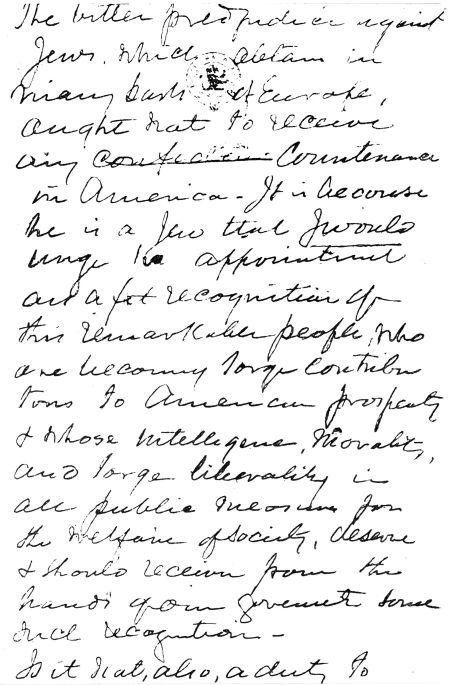 The bitter prejudice against
Jews, which obtains in
many parts of Europe,
ought not to receive
any Countenance
in America - It is because
he is a Jew that I would
urge his appointment
as a fit recognition of
this remarkable people, who
are becoming large contribu
tors to American prosperity
& whose intelligence, morality,
and large liberality in
all public measures for
the welfare of society, deserve
& should receive from the
hands of our government some
such recognition -
Is it not, also, a duty to